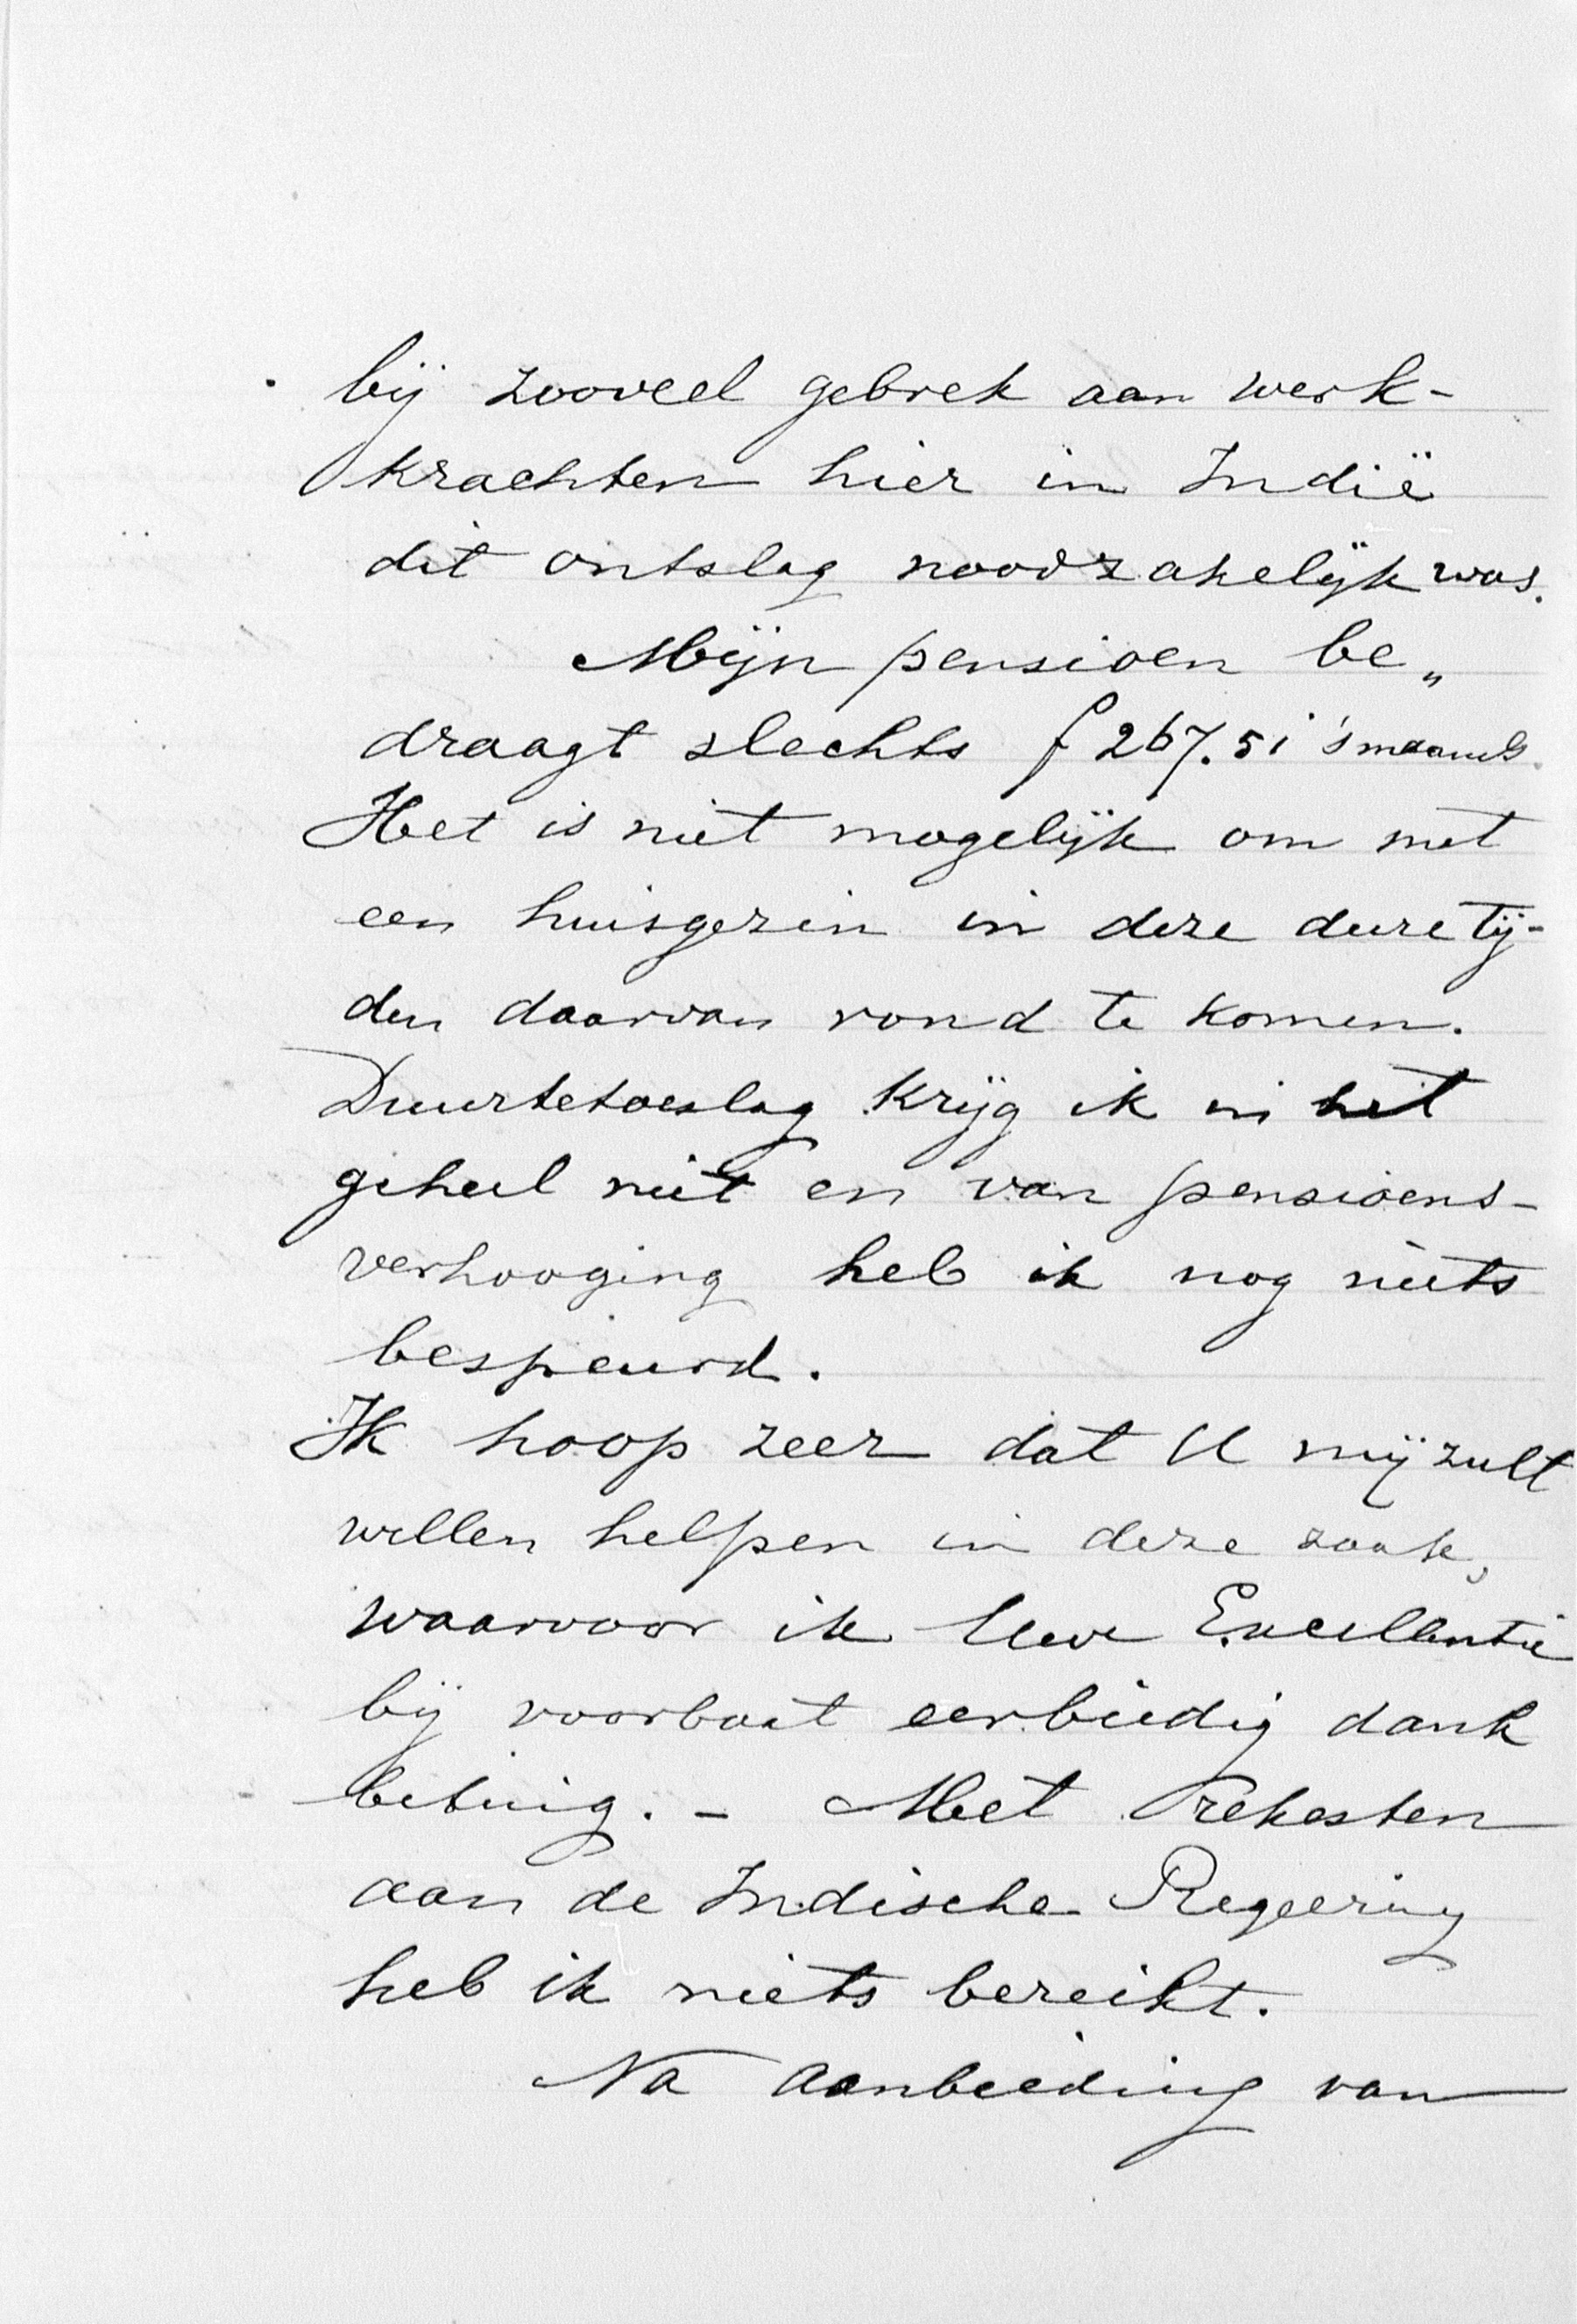 bij zooveel gebrek aan werk-
krachten hier in Indië
dit ontslag noodzakelijk was.
Mijn pensioen be„
draagt slechts f 267.51 's maands.
Het is niet mogelijk om met
een huisgezin in deze dure tij-
den daarvan rond te komen.
Duurtetoeslag krijg ik in het
geheel niet en van pensioens-
verhooging heb ik nog niets
bespeurd.
Ik hoop zeer dat U mij zult
willen helpen in deze zaak,
waarvoor ik Uwe Excellentie
bij voorbaat eerbiedig dank
betuig. - Met rekesten
aan de Indische Regeering
heb ik niets bereikt.
Na aanbieding van